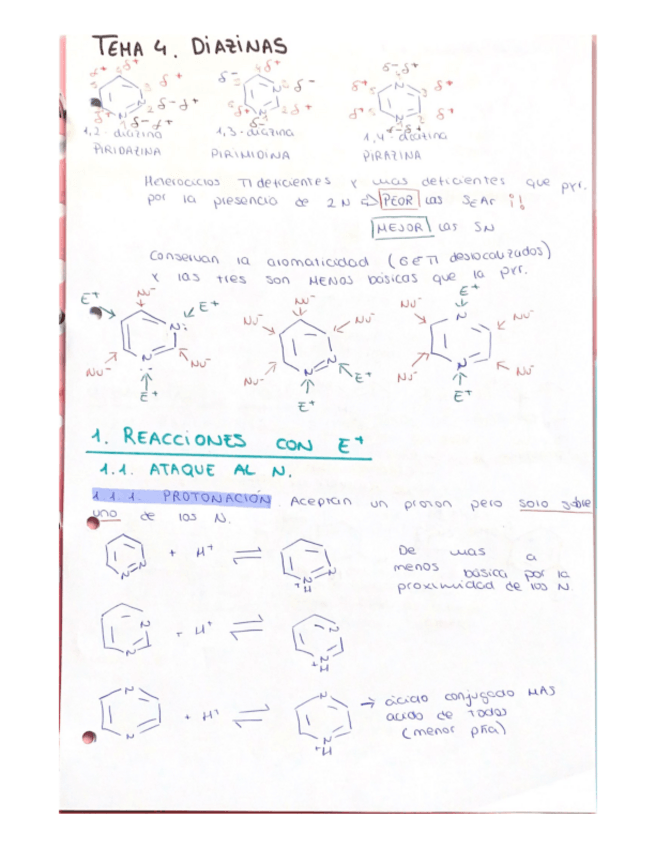 TEMA 4. DIAZINAS
1,2-diazina
1,3-diazina
1,4-diazina
PIRIDAZINA
PIRIMIDINA
PIRAZINA
Heterociclos π deficientes y mas deficientes que pyr.
por la presencia de 2 N ⇨ PEOR las SEAr ¡!
MEJOR las SN
Conservan la aromaticidad (6 e⁻ π deslocalizados)
y las tres son MENOS básicas que la pyr.
1. REACCIONES CON E⁺
1.1. ATAQUE AL N.
1.1.1. PROTONACIÓN. Aceptan un proton pero solo sobre
uno de los N.
+ H⁺ ⇌
De mas a
menos básica por la
proximidad de los N
+ H⁺ ⇌
+ H⁺ ⇌
→ ácido conjugado MAS
acido de todos
(menor pKa)